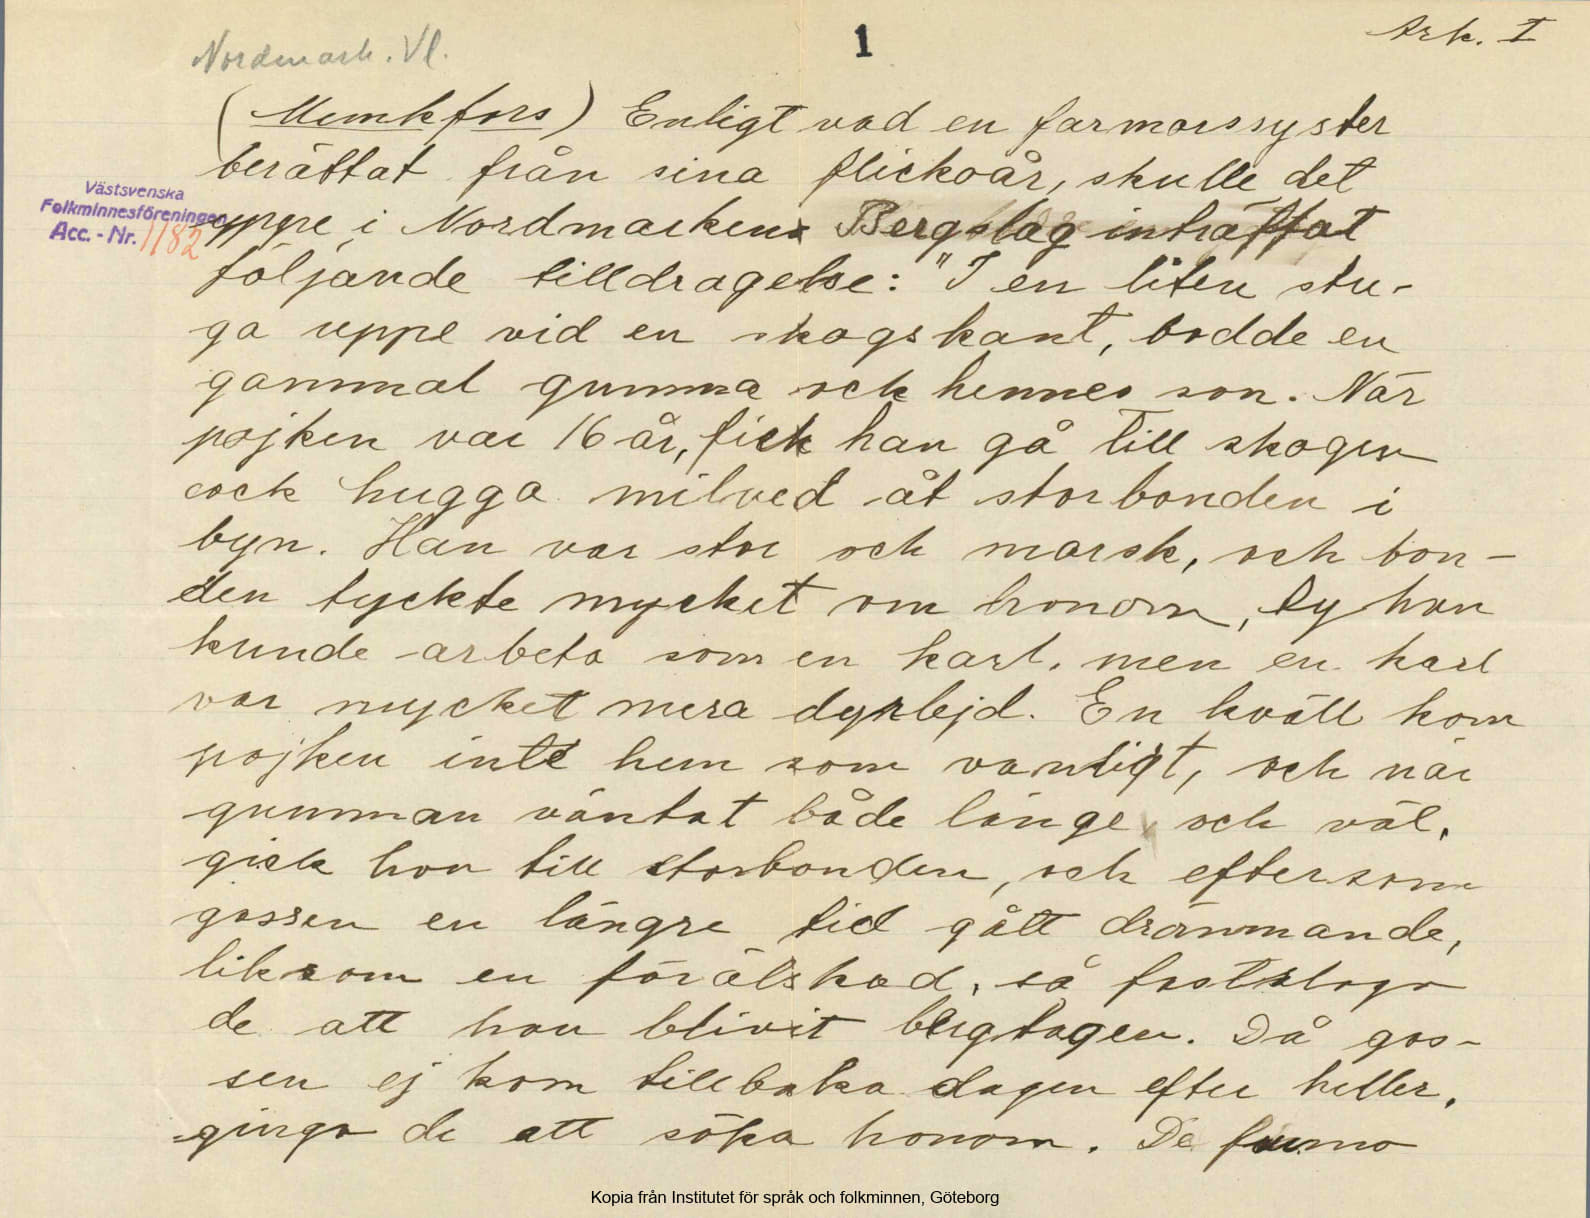 Nordmark. Vl.
1
Ark. I
(Munkfors) Enligt vad en farmorssyster
berättat från sina flickoår, skulle det
Västsvenska
Folkminnesföreningen
Acc. - Nr. 1182
uppe i Nordmarkens Bergslag inträffat
följande tilldragelse: "I en liten stu-
ga uppe vid en skogskant, bodde en
gammal gumma och hennes son. När
pojken var 16 år, fick han gå till skogen
och hugga milved åt storbonden i
byn. Han var stor och morsk, och bon-
den tyckte mycket om honom, ty han
kunde arbeta som en karl, men en karl
var mycket mera dyrlejd. En kväll kom
pojken inte hem som vanligt, och när
gumman väntat både länge och väl,
gick hon till storbonden, och eftersom
gossen en längre tid gått drömmande,
liksom en förälskad, så fastslogo
de att han blivit bergtagen. Då gos-
sen ej kom tillbaka dagen efter heller,
gingo de att söka honom. De funno
Kopia från Institutet för språk och folkminnen, Göteborg